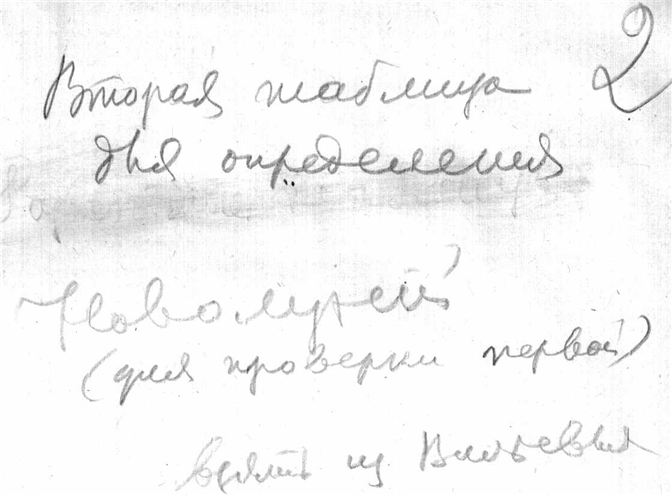 Вторая таблица 2
для определения
Новолуний
(для проверки первой)
взять из